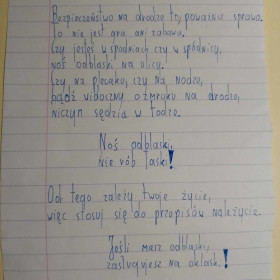 Bezpieczeństwo na drodze to poważna sprawa.
To nie jest gra, ani zabawa.
Czy jesteś w spodniach czy w spódnicy,
noś odblaski na ulicy.
Czy na plecaku, czy na nodze,
bądź widoczny o zmroku na drodze,
niczym sędzia w todze.
Noś odblaski,
nie rób łaski!
Od tego zależy twoje życie,
więc stosuj się do przepisów należycie.
Jeśli masz odblaski,
zasługujesz na oklaski!